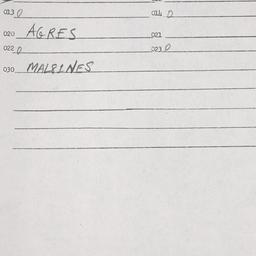 013 0 014 0
020 AGRES 021
022 0 023 0
030 MALPINES